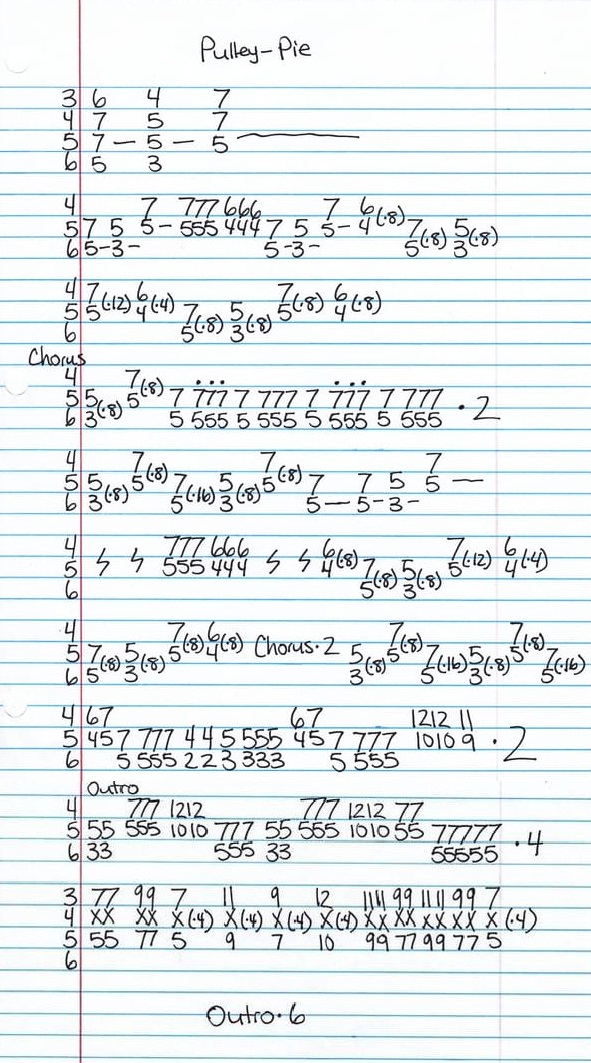 Pulley-Pie
3 6 4 7
4 7 5 7
5 7 — 5 — 5 ———
6 5 3
4 7 777 666 7 6
5 7 5 5- 555 444 7 5 5- 4(·8) 7 5
6 5-3- 5-3- 5(·8) 3(·8)
4 7 6 7 6
5 5(·12) 4(·4) 7 5 5(·8) 4(·8)
6 5(·8) 3(·8)
Chorus
4 7
5 5 5(·8) 7 777 7 777 7 777 7 777 ·2
6 3(·8) 5 555 5 555 5 555 5 555
4 7 7 7
5 5 5(·8) 7 5 5(·8) 7 7 5 5 —
6 3(·8) 5(·16) 3(·8) 5— 5-3-
4 777 666 6 7 6
5 ϟ ϟ 555 444 ϟ ϟ 4(·8) 7 5 5(·12) 4(·4)
6 5(·8) 3(·8)
4 7 6 7 7
5 7 5 5(·8) 4(·8) Chorus·2 5 5(·8) 7 5 5(·8) 7
6 5(·8) 3(·8) 3(·8) 5(·16) 3(·8) 5(·16)
4 67 67 1212 11
5 457 777 4 4 5 555 457 777 1010 9 ·2
6 5 555 2 2 3 333 5 555
Outro
4 777 1212 777 1212 77
5 55 555 1010 777 55 555 1010 55 77777 ·4
6 33 555 33 55555
3 77 99 7 11 9 12 1111 99 1111 99 7
4 XX XX X(·4) X(·4) X(·4) X(·4) XX XX XX XX X(·4)
5 55 77 5 9 7 10 99 77 99 77 5
6
Outro·6